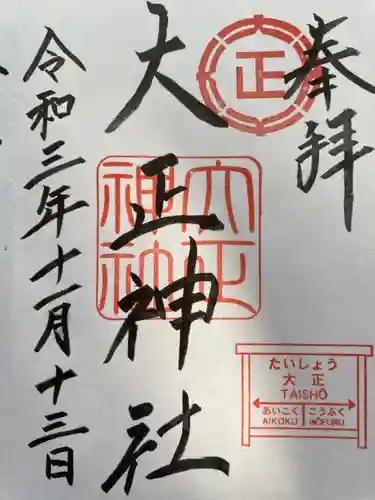 奉拝
正
大正神社
大正
神社
令和三年十一月十三日
たいしょう
大正
TAISHŌ
あいこく こうふく
AIKOKU KŌFUKU